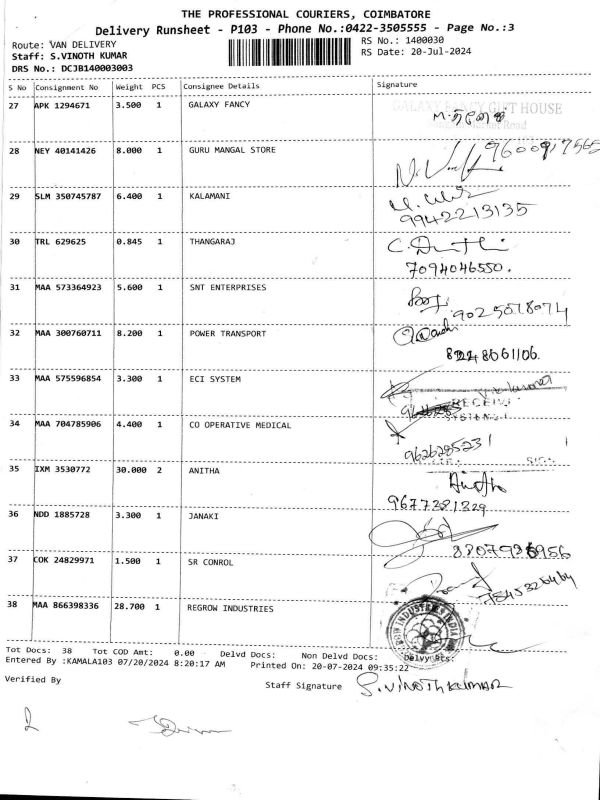 THE PROFESSIONAL COURIERS, COIMBATORE
Delivery Runsheet - P103 - Phone No.:0422-3505555 - Page No.:3
Route: VAN DELIVERY
RS No.: 1400030
Staff: S.VINOTH KUMAR
RS Date: 20-Jul-2024
DRS No.: DCJB140003003
S No Consignment No Weight PCS Consignee Details Signature
27 APK 1294671 3.500 1 GALAXY FANCY
GALAXY FANCY GIFT HOUSE
28 NEY 40141426 8.000 1 GURU MANGAL STORE
9600917565
29 SLM 350745787 6.400 1 KALAMANI
9942213135
30 TRL 629625 0.845 1 THANGARAJ
7094046550.
31 MAA 573364923 5.600 1 SNT ENTERPRISES
9025078074
32 MAA 300760711 8.200 1 POWER TRANSPORT
8248061106.
33 MAA 575596854 3.300 1 ECI SYSTEM
34 MAA 704785906 4.400 1 CO OPERATIVE MEDICAL
9626285231
35 IXM 3530772 30.000 2 ANITHA
Anitha
9677381329
36 NDD 1885728 3.300 1 JANAKI
8807936956
37 COK 24829971 1.500 1 SR CONROL
38 MAA 866398336 28.700 1 REGROW INDUSTRIES
Tot Docs: 38 Tot COD Amt: 0.00 Delvd Docs: Non Delvd Docs: Delvy Pts:
Entered By :KAMALA103 07/20/2024 8:20:17 AM Printed On: 20-07-2024 09:35:22
Verified By
Staff Signature S.VINOTH KUMAR